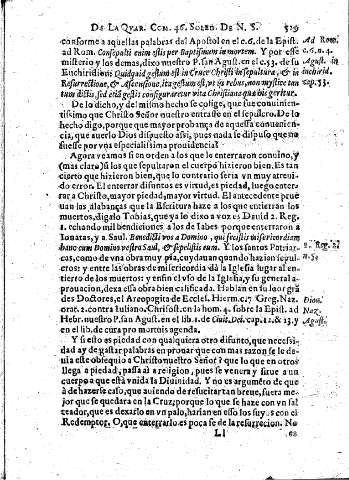 DE LA QVAR. COM. 46. SOLED. DE N. S. 529
conforme a aquellas palabras del Apostol en el c. 6. de la Epist.
ad Rom. Consepulti enim estis per Baptismum in mortem. Y por esse
misterio y los demas, dixo nuestro P. san Agust. en el c. 53. de su
Euchiridion Quidquid gestum est in Cruce Christi in sepultura, & in
Resurrectione, & Ascensione, ita gestum est, vt his rebus, non mystice tan
tum dictis, sed etiã gestis configuraretur vita Christiana quæ hic geritur.
De lo dicho, y del mismo hecho se colige, que fue conuinien-
tissimo que Christo Señor nuestro entrasse en el sepulcro. De lo
hecho digo, porque que mayor probança de aquessa conuenien-
cia, que auerlo Dios dispuesto assi, pues nada se dispuso que no
fuesse por vna especialissima prouidencia?
Agora veamos si en orden a los que le enterraron conuino, y
(mas claro) si los que sepultaron el cuerpo hizieron bien. Es tan
cierto que hizieron bien, que lo contrario seria vn muy atreui-
do error. El enterrar difuntos es virtud, es piedad, luego enter-
rar a Christo, mayor piedad, mayor virtud. El antecedente prue
uan las alabanças que la Escritura haze a los que entierran los
muertos, digalo Tobias, que ya lo dixo a voz es Dauid 2. Reg.
1. echando mil bendiciones a los de Iabes porque enterraron a
Ionatas, y a Saul. Benedicti vos a Domino, qui fecistis misericordiam
hanc cum Domino vestro Saul, & sepelistis eum. Y los santos Patriar-
cas, como de vna obra muy pia, cuydauan quando hazian sepul-
cros: y entre las obras de misericordia dà la Iglesia lugar al en-
tierro de los muertos: y en fin el vso de la Iglesia, y su general a-
prouacion, dexa essa obra bien calificada. Hablan en su loor grã
des Doctores, el Areopagita de Eccles. Hierm. c. 7. Greg. Naz.
orat. 2. contra Iuliano, Chrisost. en la hom. 4. sobre la Epist. ad
Hebr. nuestro P. san Agust. en el lib. 1. de Ciuit. Dei. cap. 12. & 13. y
en el lib. de cura pro mortuis agenda.
Y si esto es piedad con qualquiera otro difunto, que necessi-
dad ay de gastar palabras en prouar que con mas razon se le de-
uia este obsequio a Christo nuestro Señor? que lo que en otros
llega a piedad, passa ài a religion, pues se venera y sirue a vn
cuerpo a que està vnida la Diuinidad. Y no es argumẽto de que
à de hazerse caso, que auiendo de resucitar tan breue, fuera me-
jor que se quedara en la Cruz; porque lo que se haze con vn sal
teador, que es dexarlo en vn palo, harian en esso los suyos con el
Redemptor. O, que enterrarlo es poca fe de la resurrecion. No
Ll es
Ad Rom.
c. 6. n. 4.
Agust. in
inchirid.
cap. 53.
2. Reg. 2.
n. 5.
Dion.
Naz.
Agust.